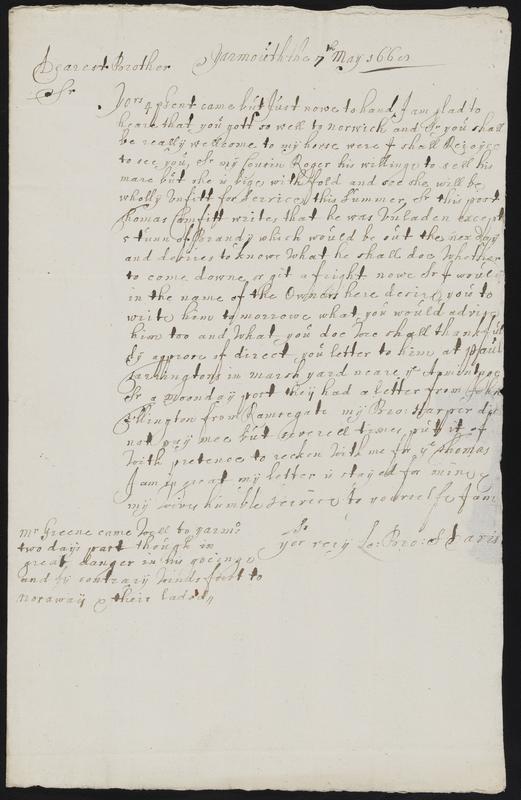 Dearest Brother Yarmouth the 7th May 1660
Sr
Yors 4 psent came but Just nowe to hand, I am glad to
heare that you gott so well to norwich and Sr you shall
be really wellcome to my horse were I shall Rejoyce
to see you, Sr my Cousin Roger his willinge to sell his
mare but she is bige with fold and soe she will be
wholly Unfitt for Service this Summer, Sr this post
Thomas Comfitt writes that he was Unladen except
5 tunn of Brandy which would be out the nex day
and desires to knowe what he shall doe whether
to come downe or git a fright nowe Sr I would
in the name of the Owners here desire you to
write him to morrowe what you would advise
him too and what you doe wee shall thankfull
ly approve of direct you letter to him at Paul
Farringtons in marsh yard neare ye
Sr a moonday post they had a letter from John
Ellington from Ramsegate my Bro: Harper did
not pay mee but severell times putt it of
with pretence to recken with me for ye Thomas
I am in great my letter is stayed for mine &
my wives humble Service to yourselfe I am
Sr
yor very Lo: Bro:
mr Greene came well to yarmo
two days past though in
great danger in his goeinge
and by contrary winds fort to
noraway & their laded